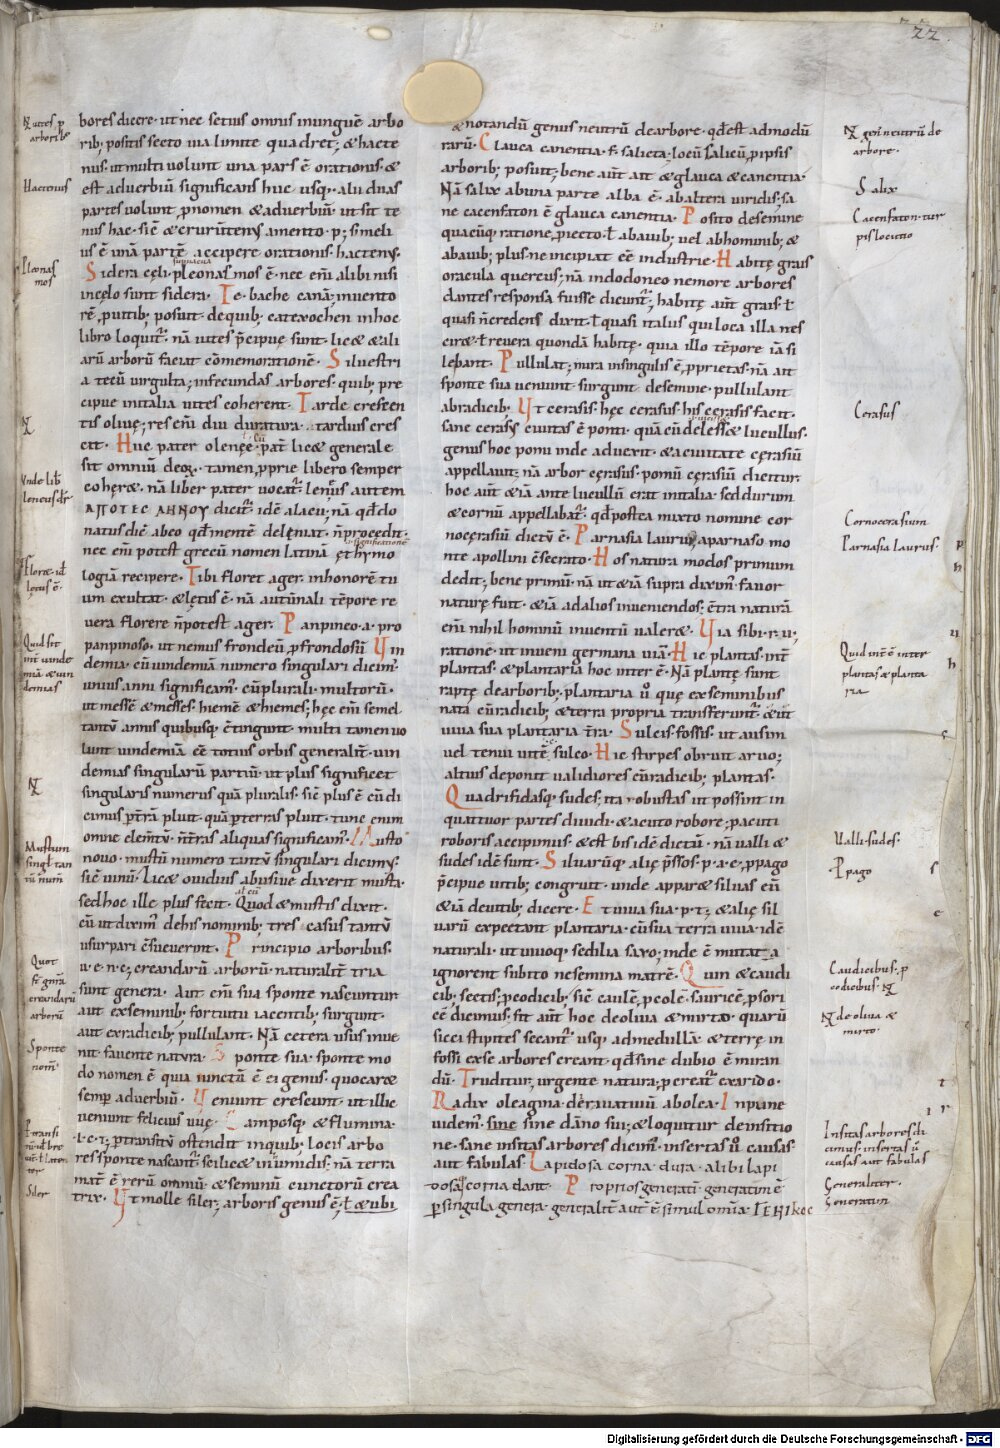 22
bores dicere· ut nec setius omnis inunguē arbo
rib; positis secto uia limite quadret; & hacte
nus· ut multi uolunt una pars ē orationis· &
est aduerbiū significans huc usq;· alii duas
partes uolunt pnomen & aduerbiū· ut sit te
nus hac· sic &
us ē unā partē accipere orationis· hacten;·
Sidera cęli· pleonasmos ē· nec eni alibi nisi
incęlo sunt sidera· Te· bache canā; inuento
rē
libro loquit· nā uites p̄cipuę sunt· lic& & ali
arū arborū faciat cōmemorationē· Siluestri
a tecū uirgulta; infecundas arbores· quib; pre
cipue initalia uites coherent· Tarde crescen
tis oliuę; res eni diu duratura· tardius cres
cit· Huc pater olenęe· pat lic& generale
sit omniū deoꝝ· tamen pprie libero semper
coher&· nā liber pater uocat lenęus autem
ΑΠΟΤΕC ΛΗΝΟΥ dicit· idē alacu; nā qđ do
natus dic̄ abeo qđ mentē deleniat· n̄ procedit·
nec eni potest grecū nomen latinā ęthymo
logiā recipere· Tibi floret ager· in honorē tu
um exultat· & lętus ē· nā autūnali tēpore re
uera florere n̄ potest ager· Panpineo· a· pro
panpinoso· ut nemus frondeū p frondosū Vin
demia· cū uindemiā numero singulari dicim
unius anni significam· cū plurali· multorū·
ut messē & messes· hiemē & hiemes; hęc eni semel
tantū annis quibusq; c̄tingunt· multi tamen uo
lunt uindemiā ee totius orbis generalit· uin
demias singularū partiū· ut plus significet
singularis numerus quā pluralis· sic plus ē cū di
cimus p trā pluit· quā p terras pluit· tunc enim
omne elemtū· n̄ tras aliquas significam· Musto
novo· mustū numero tantū singulari dicim;·
sic uinū· Lic& ouidius abusiue dixerit musta·
sed hoc ille plus fecit· Quod & mustis dixit·
cū ut diximꝰ dehis nominib; tres casus tantū
usurpari c̄sueuerint· Principio arboribus·
u· e· n· c; creandarū arborū· naturalit tria
sunt genera· Aut eni sua sponte nascuntur
aut exseminib; fortuitu iacentib; surgunt·
aut exradicib; pullulant· Nā cetera usus inue
nit fauente natura· Sponte sua· sponte mo
do nomen ē quia iunctū ē ei genus· quo car&
semp aduerbiū· Veniunt crescunt· ut illic
ueniunt felicius uuę· Camposq; & flumina·
l· c· t; p transitū ostendit in quib; locis arbo
res sponte nascant· scilic& in umidis· nā terra
mat ē rerū omniū & seminū cunctorū crea
trix· Vt molle siler; arboris genus ē; ł & ubi
& notandū genus neutrū de arbore· qđ est admodū
rarū· Glauca canentia· f· salicta; locū salicū p ipsis
arborib; posuit; bene aūt ait & glauca & canentia·
Nā salix ab una parte alba ē· ab altera uiridis· sa
ne cacenfaton ē glauca canentia· Posito desemine
quacūq; ratione p iecto· ł abauib; uel abhominib; &
abauib; plus· ne incipiat ee industrie· Habitę grais
oracula quercus; nā indodoneo nemore arbores
dantes responsa fuisse dicunt; habitę aut grais· ł
quasi n̄ credens dixit· ł quasi italus qui loca illa nes
cir&· ł reuera quondā habitę· quia illo tēpore iā si
lebant· Pullulat; mira insingulis ē pprietas· nā ait
sponte sua ueniunt surgunt desemine· pullulant
abradicib; Vt cerasis· hęc cerasus· his cerasis facit·
sane cerasus ciuitas ē ponti· quā cū deless& lucullus·
genus hoc pomi inde aduexit· & aciuitate cęrasiū
appellauit; nā arbor cęrasus· pomū cęrasiū dicitur·
hoc aut & iā ante lucullū erat initalia· sed durum
& cornū appellabat· qđ postea mixto nomine cor
nocęrasiū dictū ē· Parnasia laurus; aparnaso mo
nte apollini c̄secrato· Hos natura modos primum
dedit; bene primū· nā ut & iā supra diximꝰ fauor
naturę fuit· & iā adalios inueniendos; c̄tra naturā
eni nihil hominū inuentū ualer&· Via sibi· r· u;
ratione· ut inueni germana uiā· Hic plantas· int
plantas· & plantaria hoc inter ē· Nā plantę sunt
raptę dearborib; plantaria ū quę exseminibus
nata cū radicib; & terra propria transferunt· & ut
uiua sua plantaria tra· Sulcis· fossis· ut ausim
uel tenui uitē sulco· Hic stirpes obruit aruo;
altius deponit ualidiores cū radicib; plantas·
Quadrifidasq; sudes; ita robustas ut possint in
quattuor partes diuidi· & acuto robore p acuti
roboris accipimus· & est bis idē dictū· nā ualli &
sudes idē sunt· Siluarūq; alię p̄ssos· p· a· e; ppago
p̄cipue uitib; congruit· unde appar& siluas eū
& iā deuitib; dicere· Et uiua sua· p· t; & alię sil
uarū expectant plantaria· cū sua terra uiua· idē
naturali· ut uiuoq; sedilia saxo; inde ē mutata
ignorent subito ne semina matrē· Quin & caudi
cib; sectis; p codicib; sic caulē p colē· sauricē p sori
cē dicimus; fit aut hoc deoliua & mirto· quarū
sicci stipites secant usq; admedullā· & terrę in
fossi exse arbores creant· qđ sine dubio ē miran
dū· Truditur; urgente natura p creat ex arido·
Radix oleagina· deriuatiuū abolea· Inpune
uidemꝰ sine sine dāno sui; & loquitur deinsitio
ne· sane insitas arbores dicimꝰ· insertas ū causas·
aut fabulas· Lapidosa corna· dura· alibi lapi
dosaq; corna dant· Proprios generati· generatim ē
p singula genera· generalit aut ē simul omīa·
Hactenus
Pleonas
mos
Unde lib
leneus dr
Quid sit
int uinde
miā & uin
demias
Mustum
singl tan
tū numi
Quot
st gnra
creandarū
arborū
Sponte
nom
Siler
gen neutrū de
arbore·
Salix
Cacenfaton· tur
pis locutio
Cerasus
Cornocerasium
Parnasia laurus·
Quid int ē inter
plantas & planta
ria
Ualli· sudes·
Ppago
Caudicibus· p
codicibus·
de oliua &
mirto·
Insitas arbores di
cimus· insertas ū
causas aut fabulas
Generaliter·
Generatim
Digitalisierung gefördert durch die Deutsche Forschungsgemeinschaft - DFG